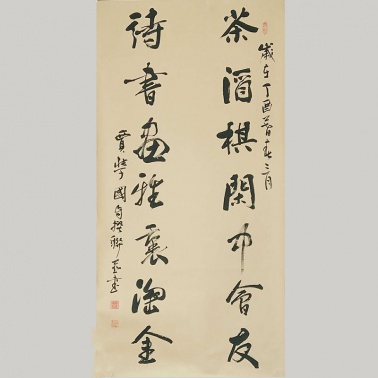 茶酒棋閑中會友
歲在丁酉暮春三月
詩書畫雅裏淘金
賈國自撰聯並書